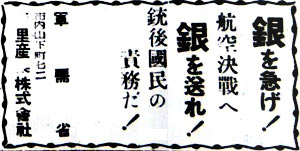 銀を急げ!
航空決戦へ
銀を送れ!
銃後國民の
責務だ!
軍需省
市内山下町七二
里産株式會社